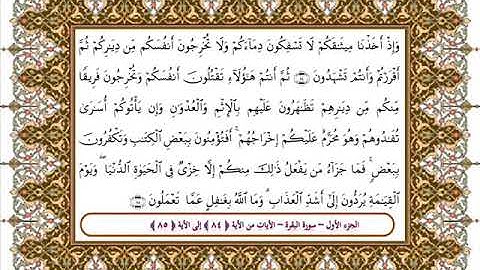 وَإِذْ أَخَذْنَا مِيثَٰقَكُمْ لَا تَسْفِكُونَ دِمَآءَكُمْ وَلَا تُخْرِجُونَ أَنفُسَكُم مِّن دِيَٰرِكُمْ ثُمَّ
أَقْرَرْتُمْ وَأَنتُمْ تَشْهَدُونَ ﴿٨٤﴾ ثُمَّ أَنتُمْ هَٰٓؤُلَآءِ تَقْتُلُونَ أَنفُسَكُمْ وَتُخْرِجُونَ فَرِيقًا
مِّنكُم مِّن دِيَٰرِهِمْ تَظَٰهَرُونَ عَلَيْهِم بِٱلْإِثْمِ وَٱلْعُدْوَٰنِ وَإِن يَأْتُوكُمْ أُسَٰرَىٰ
تُفَٰدُوهُمْ وَهُوَ مُحَرَّمٌ عَلَيْكُمْ إِخْرَاجُهُمْ ۚ أَفَتُؤْمِنُونَ بِبَعْضِ ٱلْكِتَٰبِ وَتَكْفُرُونَ
بِبَعْضٍ ۚ فَمَا جَزَآءُ مَن يَفْعَلُ ذَٰلِكَ مِنكُمْ إِلَّا خِزْىٌ فِى ٱلْحَيَوٰةِ ٱلدُّنْيَا ۖ وَيَوْمَ
ٱلْقِيَٰمَةِ يُرَدُّونَ إِلَىٰٓ أَشَدِّ ٱلْعَذَابِ ۗ وَمَا ٱللَّهُ بِغَٰفِلٍ عَمَّا تَعْمَلُونَ ﴿٨٥﴾
الجزء الأول – سورة البقرة – الآيات من الآية ﴿ ٨٤ ﴾ إلى الآية ﴿ ٨٥ ﴾